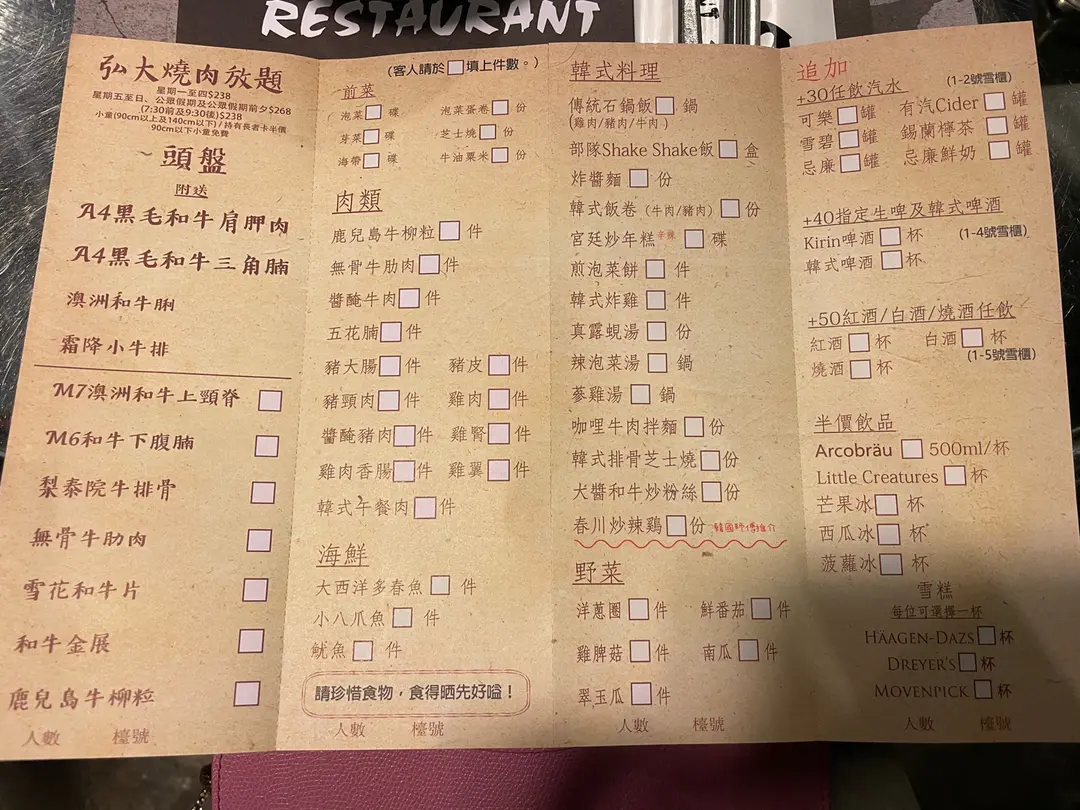 RESTAURANT
弘大燒肉放題
星期一至四$238
星期五至日、公眾假期及公眾假期前夕$268
(7:30前及9:30後)$238
小童(90cm以上及140cm以下) / 持有長者卡半價
90cm以下小童免費
頭盤
附送
A4黑毛和牛肩胛肉
A4黑毛和牛三角腩
澳洲和牛脷
霜降小牛排
M7澳洲和牛上頸脊
M6和牛下腹腩
梨泰院牛排骨
無骨牛肋肉
雪花和牛片
和牛金展
鹿兒島牛柳粒
人數 檯號
(客人請於□填上件數。)
前菜
泡菜□碟 泡菜蛋卷□份
芽菜□碟 芝士燒□份
海帶□碟 牛油粟米□份
肉類
鹿兒島牛柳粒□件
無骨牛肋肉□件
醬醃牛肉□件
五花腩□件
豬大腸□件 豬皮□件
豬頸肉□件 雞肉□件
醬醃豬肉□件 雞腎□件
雞肉香腸□件 雞翼□件
韓式午餐肉□件
海鮮
大西洋多春魚□件
小八爪魚□件
魷魚□件
請珍惜食物，食得晒先好嗌！
人數 檯號
韓式料理
傳統石鍋飯□鍋
(雞肉/豬肉/牛肉)
部隊Shake Shake飯□盒
炸醬麵□份
韓式飯卷(牛肉/豬肉)□份
宮廷炒年糕辛辣□碟
煎泡菜餅□件
韓式炸雞□件
真露蜆湯□份
辣泡菜湯□鍋
蔘雞湯□鍋
咖哩牛肉拌麵□份
韓式排骨芝士燒□份
大醬和牛炒粉絲□份
春川炒辣鷄□份 韓國師傅推介
野菜
洋蔥圈□件 鮮番茄□件
雞脾菇□件 南瓜□件
翠玉瓜□件
人數 檯號
追加
(1-2號雪櫃)
+30任飲汽水
可樂□罐 有汽Cider□罐
雪碧□罐 錫蘭檸茶□罐
忌廉□罐 忌廉鮮奶□罐
+40指定生啤及韓式啤酒
Kirin啤酒□杯 (1-4號雪櫃)
韓式啤酒□杯
+50紅酒/白酒/燒酒任飲
紅酒□杯 白酒□杯
(1-5號雪櫃)
燒酒□杯
半價飲品
Arcobräu□500ml/杯
Little Creatures□杯
芒果冰□杯
西瓜冰□杯
菠蘿冰□杯
雪糕
每位可選擇一杯
HÄAGEN-DAZS□杯
DREYER'S□杯
MOVENPICK□杯
人數 檯號